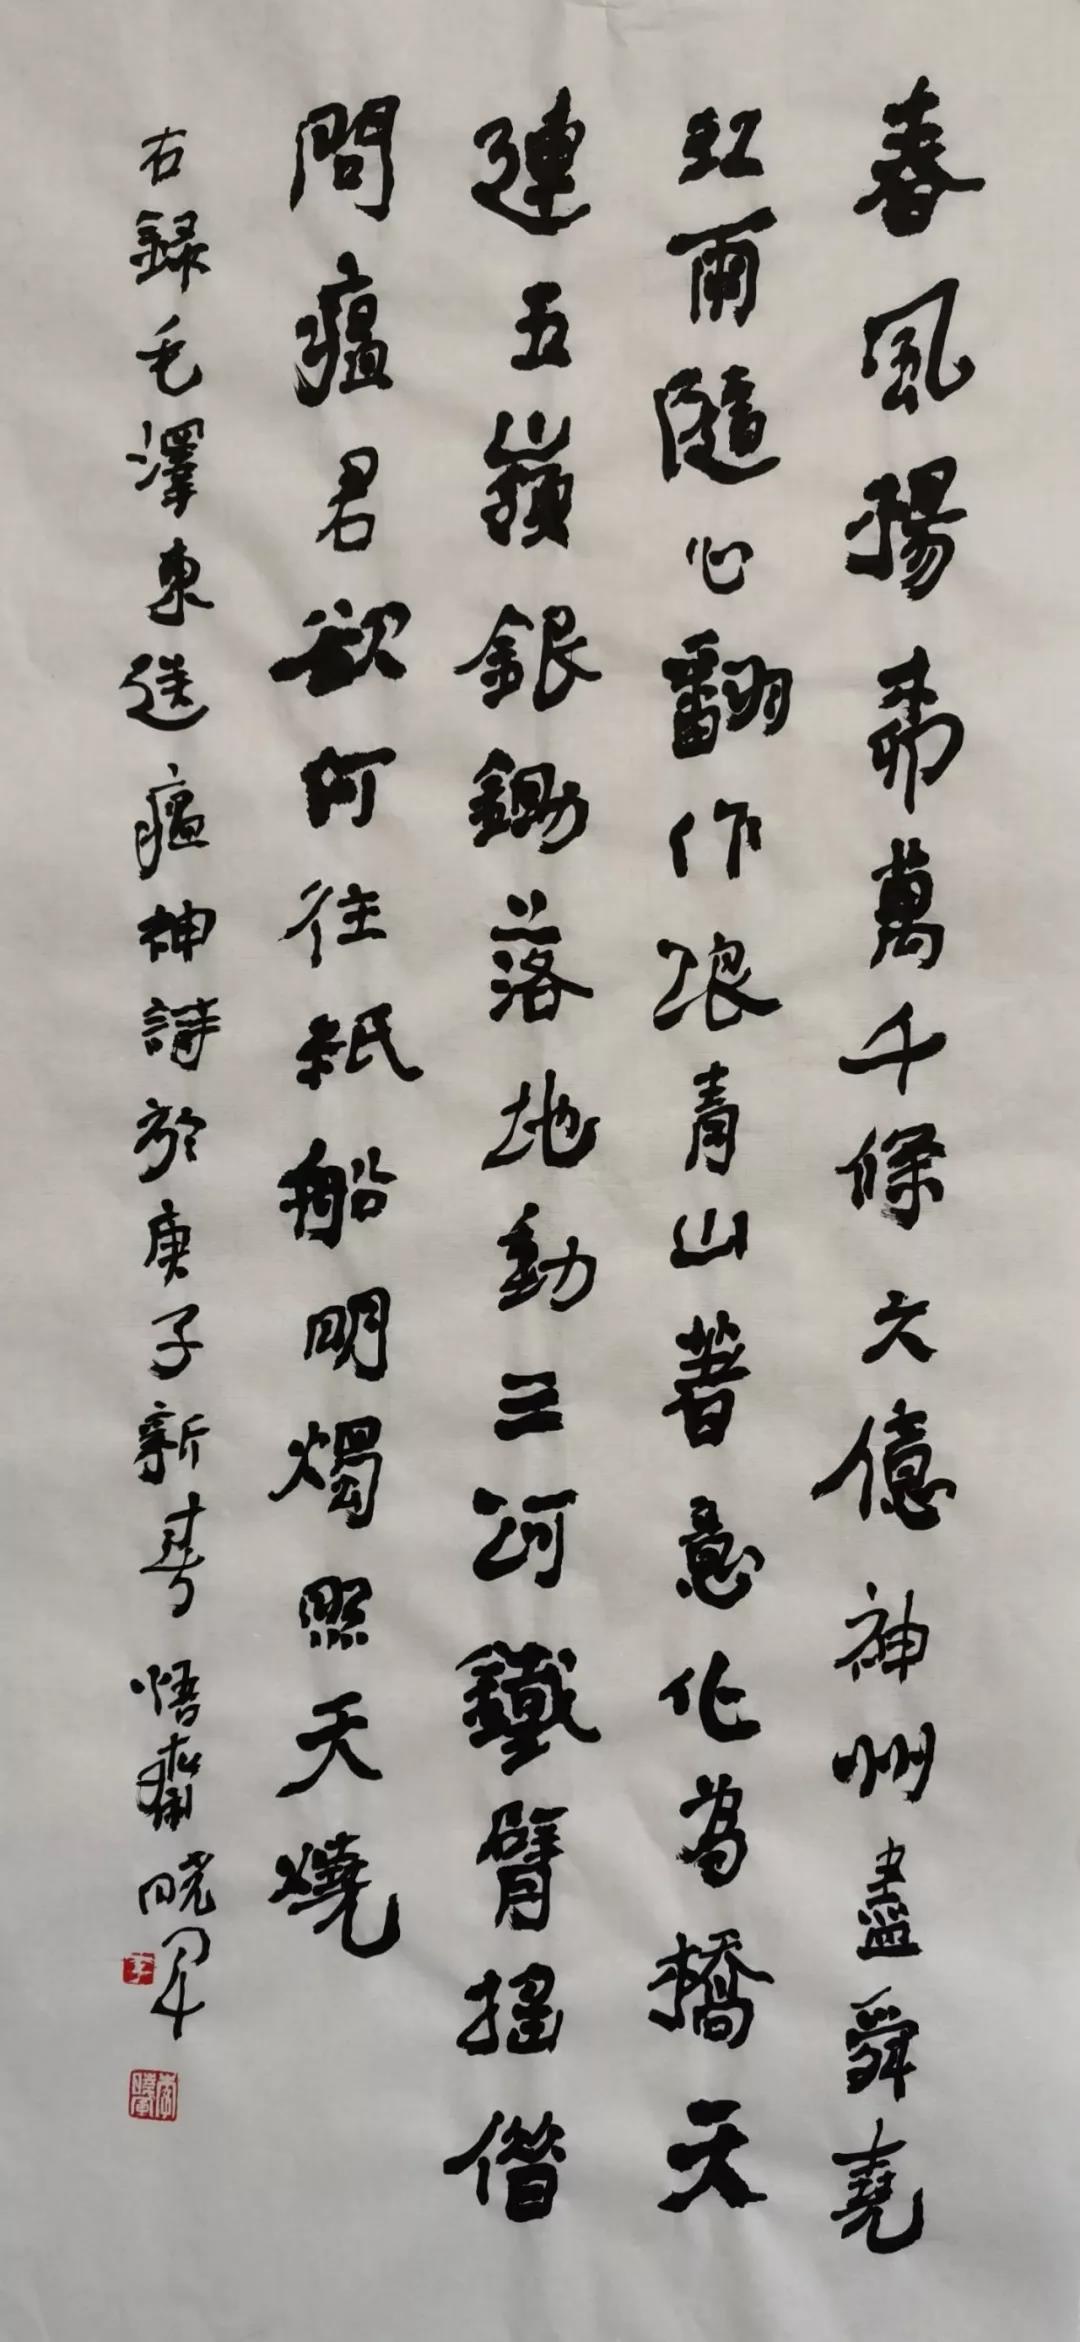 春風楊柳萬千條六億神州盡舜堯
紅雨隨心翻作浪青山著意化為橋天
連五嶺銀鋤落地動三河鐵臂搖借
問瘟君欲何往紙船明燭照天燒
右錄毛澤東送瘟神詩於庚子新春 悟齋曉軍
李
李曉軍